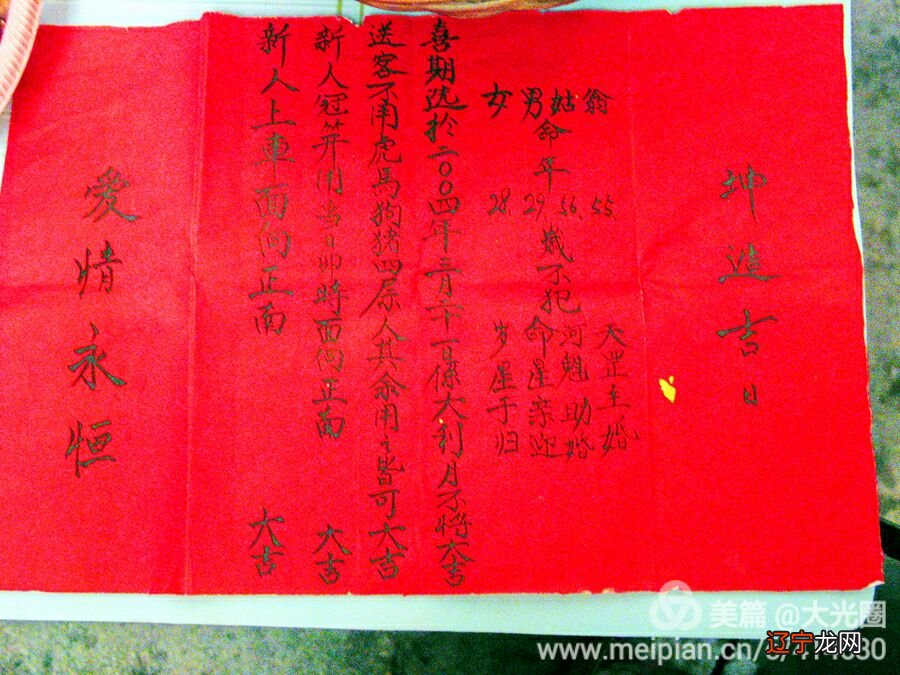 坤造吉日
翁 55. 天罡主婚
姑 56. 河魁助婚
男 29. 命星亲迎
女 28. 岁星于归
命年歲不犯
喜期选於二〇〇四年三月二十一日係大利月不将大吉
送客不用虎馬狗猪四属人其余用之皆可大吉
新人冠笄用当日卯時面向正南 大吉
新人上車面向正南 大吉
愛情永恒
美篇 @大光圈
辽宁龙网